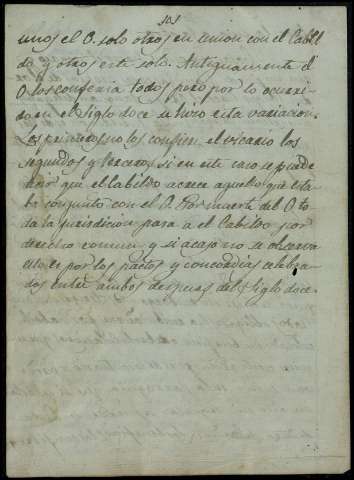 101
unos el O. solo otros en union con el Cabil
do y otros este solo. Antiguamente el
O. los conferia todos pero por lo ocurri
do en el siglo doce se hizo esta variacion.
Los primeros no los confiere el vicario los
segundos y terceros si en este caso se puede
decir que el Cabildo acrece aquello que esta
ba conjunto con el O. Por muerte del O. to
da la jurisdicion pasa a el Cabildo por
derecho comun y si acaso no se observa
esto es por los pactos y concordias celebra-
dos entre ambos despues del siglo doce.